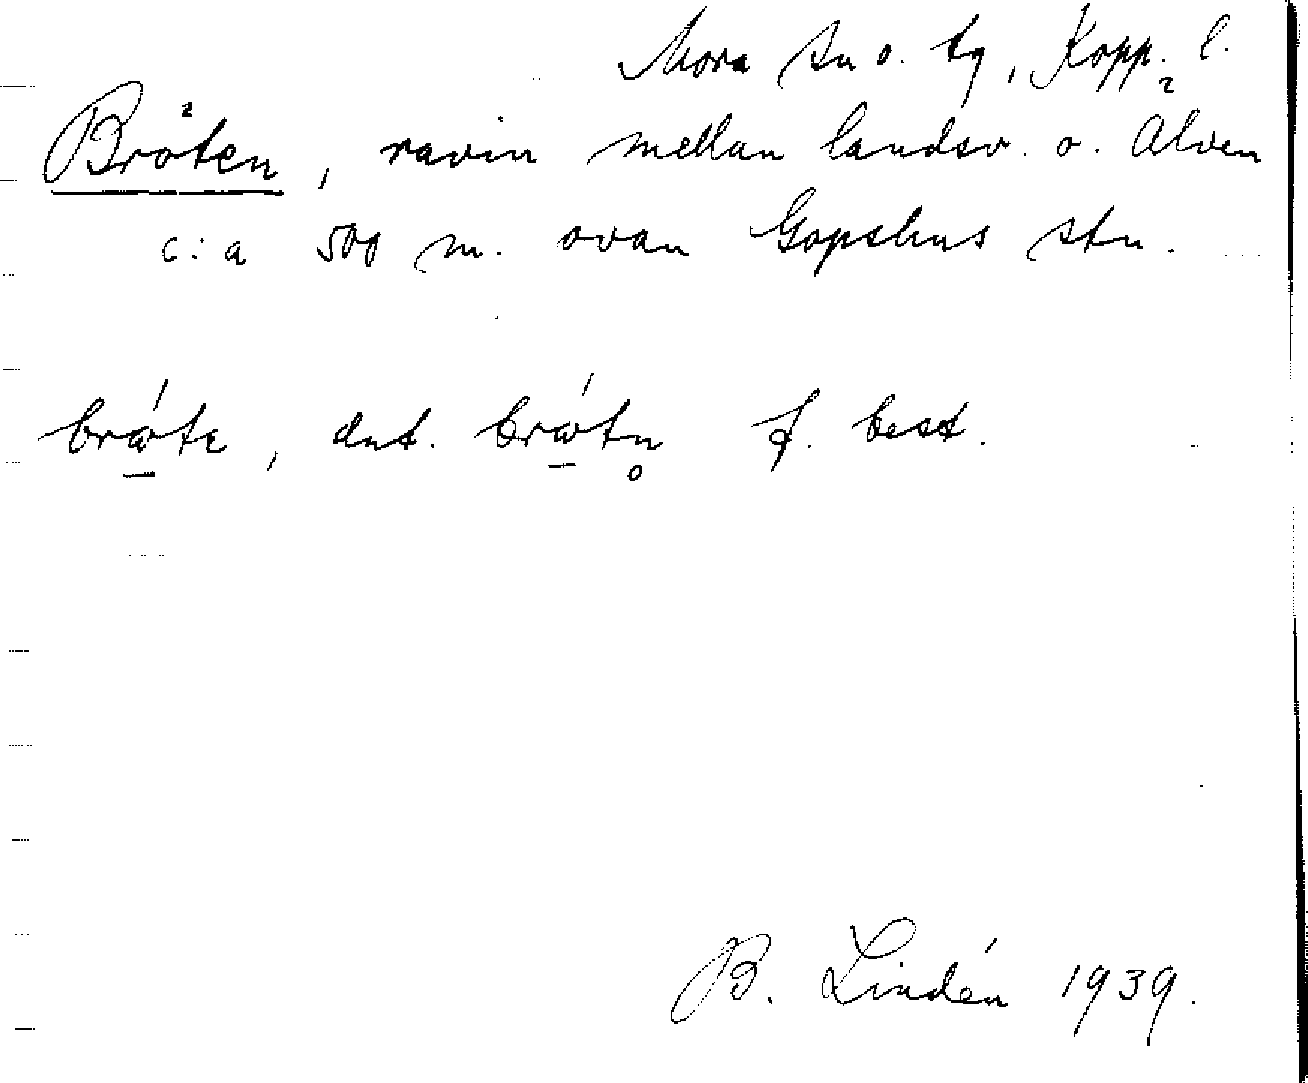 Mora sn o. tg, Kopp. l.
Bröten, ravin mellan landsv. o. Älven
c:a 500 m. ovan Gopshus stn.
brɷ́te, dat. brɷ́tn̥ f. best.
B. Lindén 1939.